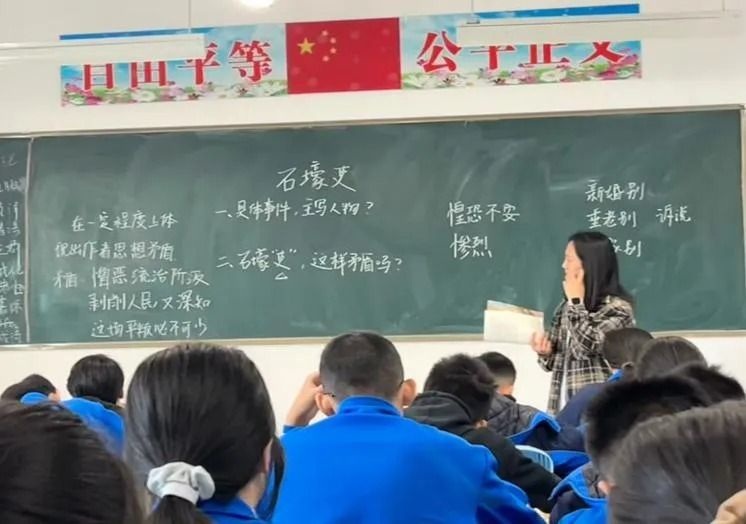 自由平等 公平正义
石壕吏
一、具体事件,主写人物?
二、石壕"吏",这样矛盾吗?
在一定程度上体
现出作者思想矛盾
矛盾 憎恶统治阶级
剥削人民又深知
这场平叛必不可少
惶恐不安
惨烈
新婚别
垂老别 诉说
家别